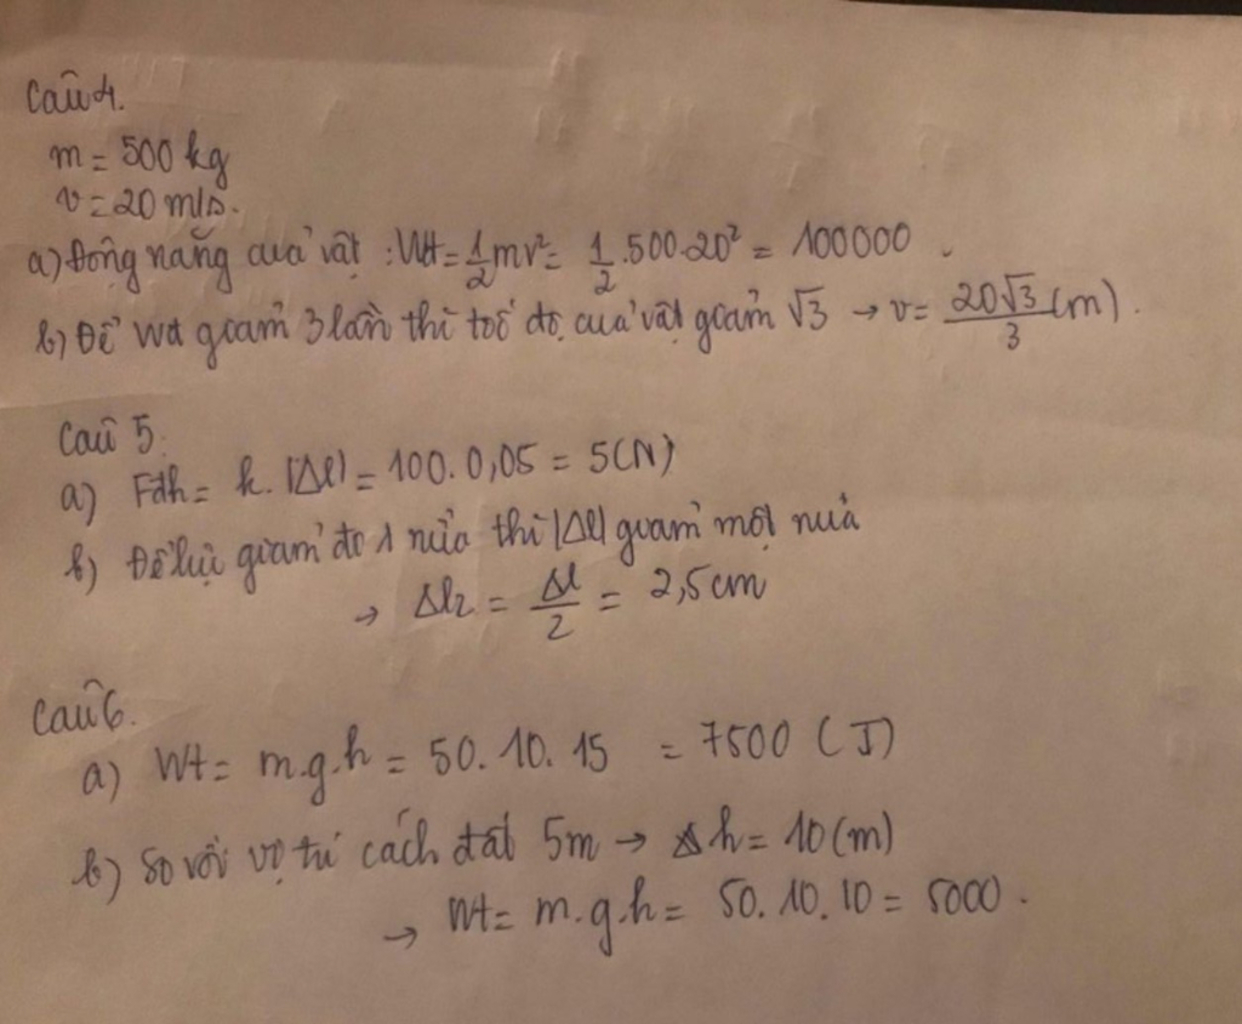 Câu 4.
m = 500 kg
v = 20 m/s.
a) Động năng của vật : Wđ = 1/2 mv² = 1/2 .500.20² = 100000 .
b) Để Wđ giảm 3 lần thì tốc độ của vật giảm √3 → v = 20√3/3 (m) .
Câu 5.
a) Fđh = k. |Δl| = 100. 0,05 = 5(N)
b) Để lực giảm đo 1 nửa thì |Δl| giảm một nửa
→ Δl2 = Δl/2 = 2,5 cm
Câu 6.
a) Wt = m.g.h = 50. 10. 15 = 7500 (J)
b) So với vị trí cách đất 5m → Δh = 10 (m)
→ Wt = m.g.h = 50. 10. 10 = 5000 .